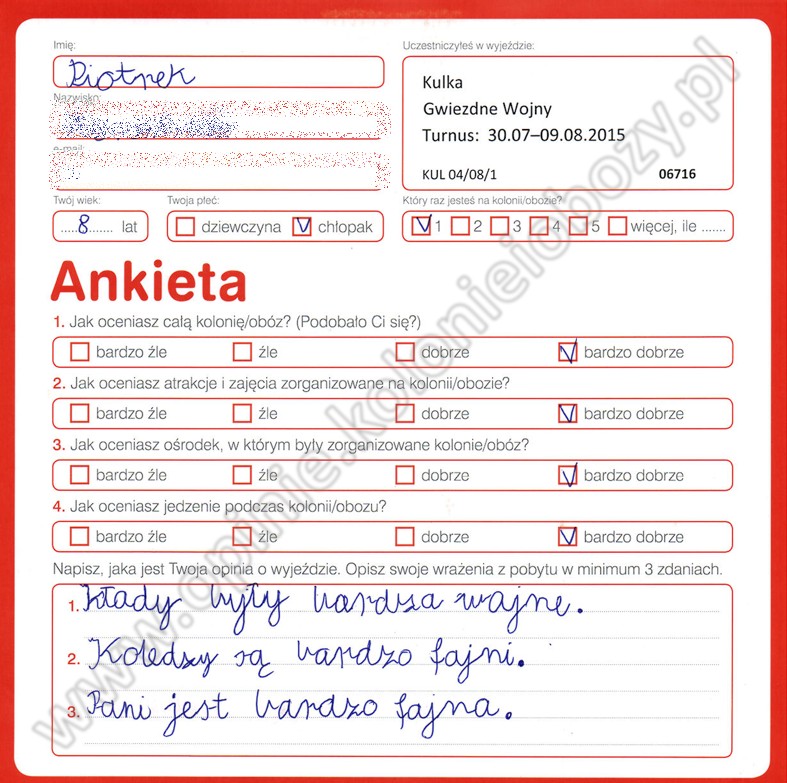 Imię:
Piotrek
Nazwisko:
e-mail:
Uczestniczyłeś w wyjeździe:
Kulka
Gwiezdne Wojny
Turnus: 30.07–09.08.2015
KUL 04/08/1 06716
Twój wiek:
.....8....... lat
Twoja płeć:
dziewczyna V chłopak
Który raz jesteś na kolonii/obozie?
V 1 2 3 4 5 więcej, ile .......
Ankieta
1. Jak oceniasz całą kolonię/obóz? (Podobało Ci się?)
bardzo źle źle dobrze V bardzo dobrze
2. Jak oceniasz atrakcje i zajęcia zorganizowane na kolonii/obozie?
bardzo źle źle dobrze V bardzo dobrze
3. Jak oceniasz ośrodek, w którym były zorganizowane kolonie/obóz?
bardzo źle źle dobrze V bardzo dobrze
4. Jak oceniasz jedzenie podczas kolonii/obozu?
bardzo źle źle dobrze V bardzo dobrze
Napisz, jaka jest Twoja opinia o wyjeździe. Opisz swoje wrażenia z pobytu w minimum 3 zdaniach.
1. były bardza wajne.
2. Koledzy są bardzo fajni.
3. Pani jest bardzo fajna.
www.opinie.kolonieiobozy.pl